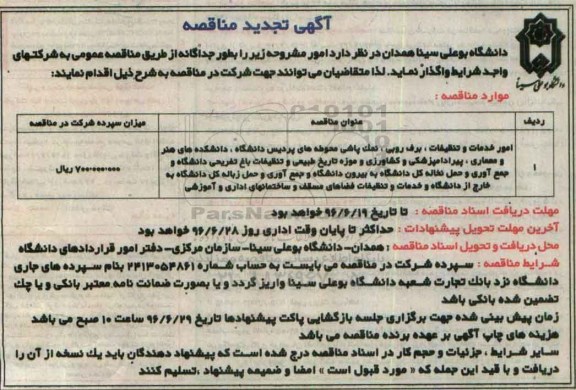 آگهی تجدید مناقصه
دانشگاه بوعلی سینا همدان در نظر دارد امور مشروحه زیر را بطور جداگانه از طریق مناقصه عمومی به شرکتهای
واجد شرایط واگذار نماید. لذا متقاضیان می توانند جهت شرکت در مناقصه به شرح ذیل اقدام نمایند:
دانشگاه بوعلی سینا
موارد مناقصه :
ردیف عنوان مناقصه میزان سپرده شرکت در مناقصه
امور خدمات و تنظیفات ، برف روبی ، نمک پاشی محوطه های پردیس دانشگاه ، دانشکده های هنر
و معماری ، پیرادامپزشکی و کشاورزی و موزه تاریخ طبیعی و تنظیفات باغ تفریحی دانشگاه و
۱ جمع آوری و حمل نخاله کل دانشگاه به بیرون دانشگاه و جمع آوری و حمل زباله کل دانشگاه به ۷۰۰۰۰۰۰۰۰ ریال
خارج از دانشگاه و خدمات و تنظیفات فضاهای مسقف و ساختمانهای اداری و آموزشی
مهلت دریافت اسناد مناقصه : تا تاریخ ۹۶/۶/۱۹ خواهد بود
آخرین مهلت تحویل پیشنهادات : حداکثر تا پایان وقت اداری روز ۹۶/۶/۲۸ خواهد بود
محل دریافت و تحویل اسناد مناقصه : همدان- دانشگاه بوعلی سینا- سازمان مرکزی- دفتر امور قراردادهای دانشگاه
شرایط مناقصه : سپرده شرکت در مناقصه می بایست به حساب شماره ۲۴۱۳۰۵۴۸۶۱ بنام سپرده های جاری
دانشگاه نزد بانک تجارت شعبه دانشگاه بوعلی سینا واریز گردد و یا بصورت ضمانت نامه معتبر بانکی و یا چک
تضمین شده بانکی باشد
زمان پیش بینی شده جهت برگزاری جلسه بازگشایی پاکت پیشنهادها تاریخ ۹۶/۶/۲۹ ساعت ۱۰ صبح می باشد
هزینه های چاپ آگهی بر عهده برنده مناقصه می باشد
سایر شرایط ، جزئیات و حجم کار در اسناد مناقصه درج شده است که پیشنهاد دهندگان باید یک نسخه از آن را
دریافت و با قید این جمله که « مورد قبول است » امضا و ضمیمه پیشنهاد ،تسلیم کنند